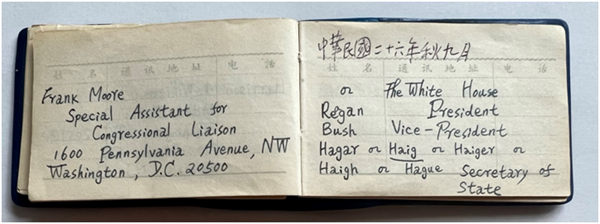 姓 名 通 讯 地 址 电 话
Frank Moore
Special Assistant for
Congressional Liaison
1600 Pennsylvania Avenue, NW
Washington, D.C. 20500
中華民國二十六年秋九月
姓 名 通 讯 地 址 电 话
or The White House
Regan President
Bush Vice-President
Hagar or Haig or Haiger or
Haigh or Hague Secretary of
State